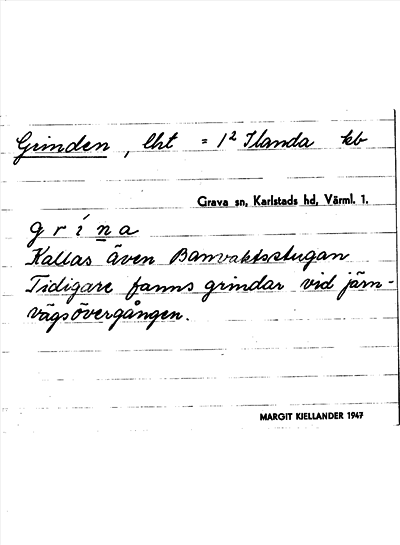 Grinden, lht = 1² Ilanda kb
Grava sn, Karlstads hd, Värml. 1.
grína
Kallas även Banvaktsstugan
Tidigare fanns grindar vid järn-
vägsövergången.
MARGIT KJELLANDER 1947